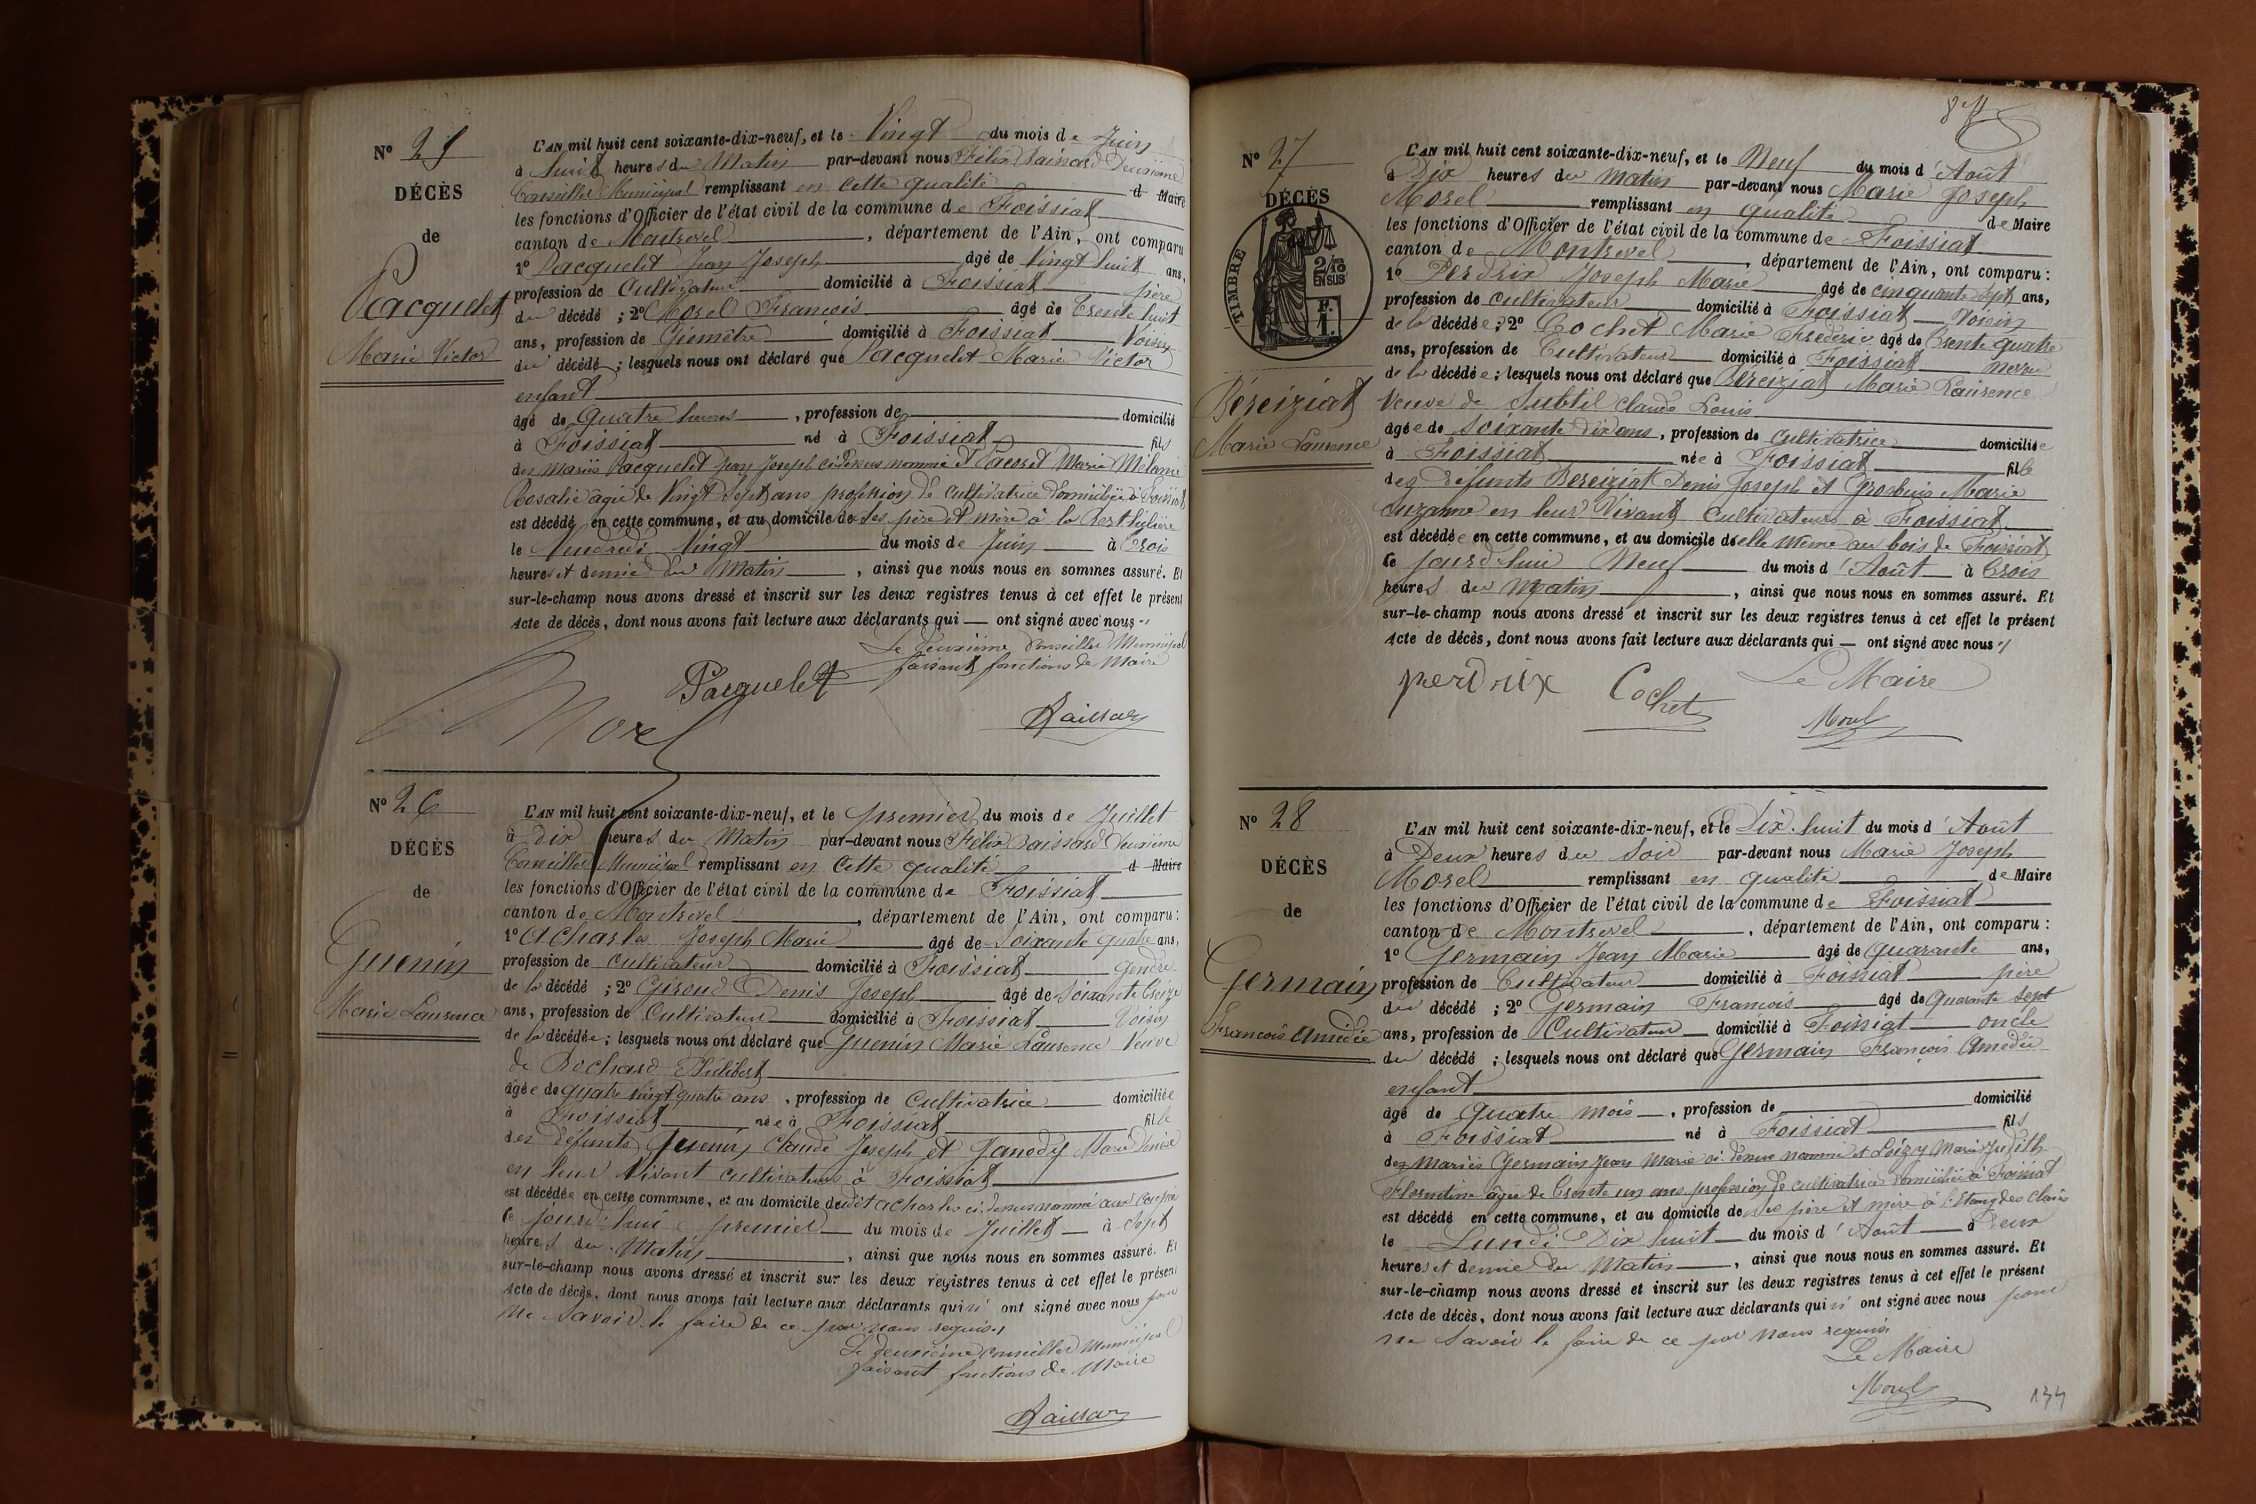 N° 25
DÉCÈS
de
Pacquelet
Marie Victor
L'AN mil huit cent soixante-dix-neuf, et le Vingt du mois de Juin
à huit heures du Matin par-devant nous Félix Deuxième
Conseiller Municipal remplissant en cette qualité d Maire
les fonctions d'Officier de l'état civil de la commune de Foissiat
canton de Montrevel, département de l'Ain, ont comparu
1° Pacquelet Jean Joseph âgé de Vingt huit ans,
profession de Cultivateur domicilié à Foissiat père
du décédé ; 2° Morel François âgé de trente huit
ans, profession de Géomètre domicilié à Foissiat Voisin
du décédé ; lesquels nous ont déclaré que Pacquelet Marie Victor
enfant
âgé de quatre heures, profession de domicilié
à Foissiat né à Foissiat fils
des mariés Pacquelet Jean Joseph ci dessus nommé et Marie Mélanie
Rosalie âgée de Vingt Sept ans profession de cultivatrice domiciliée à Foissiat
est décédé en cette commune, et au domicile de ses père et mère à la
le Vendredi Vingt du mois de Juin à trois
heures et demie du Matin, ainsi que nous nous en sommes assuré. Et
sur-le-champ nous avons dressé et inscrit sur les deux registres tenus à cet effet le présent
Acte de décès, dont nous avons fait lecture aux déclarants qui — ont signé avec nous
Le deuxième Conseiller Municipal
faisant fonctions de Maire
Pacquelet
Morel
N° 26
DÉCÈS
de
Guenin
Marie Laurence
L'AN mil huit cent soixante-dix-neuf, et le premier du mois de Juillet
à Dix heures du Matin par-devant nous Félix Deuxième
Conseiller Municipal remplissant en cette qualité d Maire
les fonctions d'Officier de l'état civil de la commune de Foissiat
canton de Montrevel, département de l'Ain, ont comparu :
1° Acharles Joseph Marie âgé de Soixante quatre ans,
profession de cultivateur domicilié à Foissiat gendre
de la décédé ; 2° Giroud Denis Joseph âgé de Soixante treize
ans, profession de Cultivateur domicilié à Foissiat Voisin
de la décédée ; lesquels nous ont déclaré que Guenin Marie Laurence Veuve
de Rochard Philibert
âgée de quatre vingt quatre ans, profession de Cultivatrice domiciliée
à Foissiat née à Foissiat fille
des défunts Guenin Claude Joseph et Janody Marie Denise
en leur Vivant cultivateurs à Foissiat
est décédée en cette commune, et au domicile dudit Acharles ci dessus nommé
le jourd'hui premier du mois de Juillet à Sept
heures du Matin, ainsi que nous nous en sommes assuré. Et
sur-le-champ nous avons dressé et inscrit sur les deux registres tenus à cet effet le présent
Acte de décès, dont nous avons fait lecture aux déclarants qui n' ont signé avec nous pour
ne Savoir le faire de ce par nous requis
Le deuxième conseiller Municipal
faisant fonctions de Maire
N° 27
DÉCÈS
TIMBRE
2/10
EN SUS
F.
1.
Béreiziat
Marie Laurence
L'AN mil huit cent soixante-dix-neuf, et le Neuf du mois d'Août
à Dix heures du Matin par-devant nous Marie Joseph
Morel remplissant en qualité de Maire
les fonctions d'Officier de l'état civil de la commune de Foissiat
canton de Montrevel, département de l'Ain, ont comparu :
1° Perdrix Joseph Marie âgé de cinquante Sept ans,
profession de cultivateur domicilié à Foissiat Voisin
de la décédée ; 2° Cochet Marie Frédéric âgé de trente quatre
ans, profession de Cultivateur domicilié à Foissiat neveu
de la décédée ; lesquels nous ont déclaré que Béreiziat Marie Laurence
Veuve de Subtil Claude Louis
âgée de Soixante dix ans, profession de Cultivatrice domiciliée
à Foissiat née à Foissiat fille
des défunts Béreiziat Denis Joseph et Grosbuis Marie
Suzanne en leur Vivant Cultivateurs à Foissiat
est décédée en cette commune, et au domicile d'elle même au bois de Foissiat
le jourd'hui Neuf du mois d'Août à trois
heures du Matin, ainsi que nous nous en sommes assuré. Et
sur-le-champ nous avons dressé et inscrit sur les deux registres tenus à cet effet le présent
Acte de décès, dont nous avons fait lecture aux déclarants qui — ont signé avec nous
Le Maire
perdrix Cochet Morel
N° 28
DÉCÈS
de
Germain
François Amédée
L'AN mil huit cent soixante-dix-neuf, et le Dix huit du mois d'Août
à Deux heures du Soir par-devant nous Marie Joseph
Morel remplissant en qualité de Maire
les fonctions d'Officier de l'état civil de la commune de Foissiat
canton de Montrevel, département de l'Ain, ont comparu :
1° Germain Jean Marie âgé de quarante ans,
profession de Cultivateur domicilié à Foissiat père
du décédé ; 2° Germain François âgé de Quarante Sept
ans, profession de Cultivateur domicilié à Foissiat oncle
du décédé ; lesquels nous ont déclaré que Germain François Amédée
enfant
âgé de quatre mois, profession de domicilié
à Foissiat né à Foissiat fils
des Mariés Germain Jean Marie ci dessus nommé et Loizy Marie Judith
Florentine âgée de trente un ans profession de cultivatrice domiciliée à Foissiat
est décédé en cette commune, et au domicile de ses père et mère à l'Etang des Claies
le Lundi Dix huit du mois d'Août à Deux
heures et demie du Matin, ainsi que nous nous en sommes assuré. Et
sur-le-champ nous avons dressé et inscrit sur les deux registres tenus à cet effet le présent
Acte de décès, dont nous avons fait lecture aux déclarants qui n' ont signé avec nous pour
ne Savoir le faire de ce par nous requis
Le Maire
Morel
144